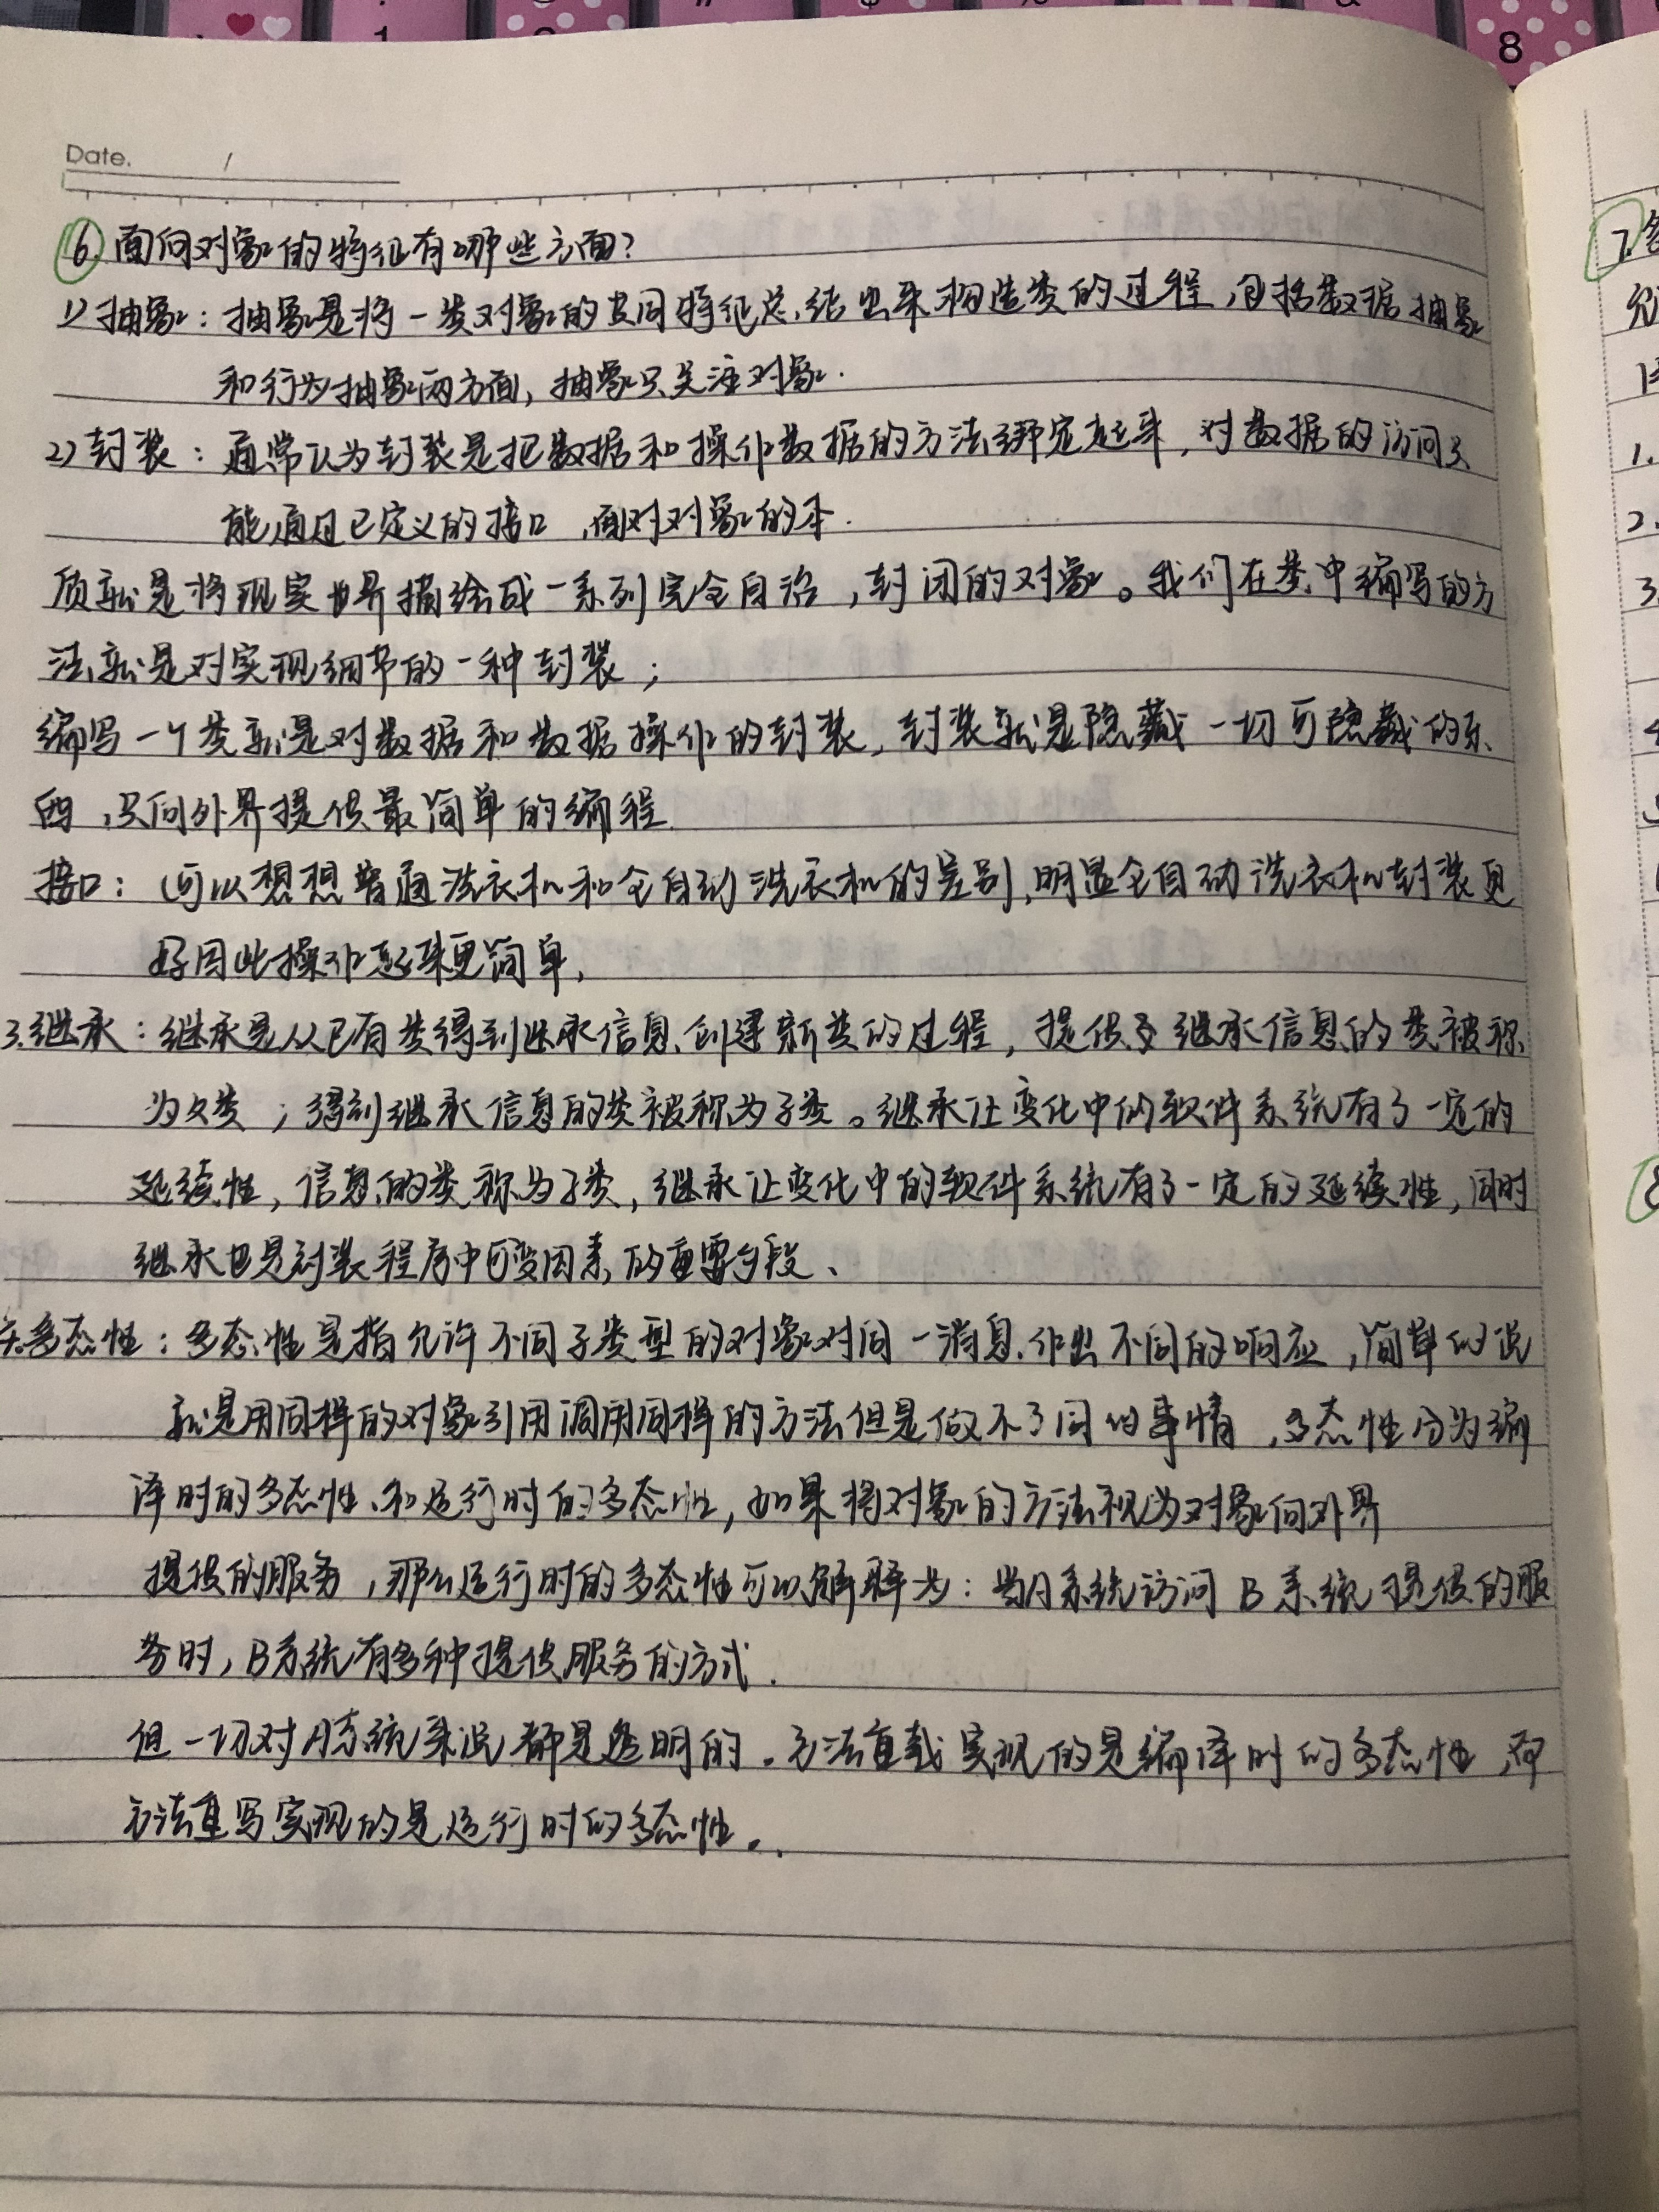 Date. /
⑥ 面向对象的特征有哪些方面?
1) 抽象: 抽象是将一类对象的共同特征总结出来构造类的过程, 包括数据抽象
和行为抽象两方面, 抽象只关注对象.
2) 封装: 通常认为封装是把数据和操作数据的方法绑定起来, 对数据的访问只
能通过已定义的接口, 面对对象的本.
质就是将现实世界描绘成一系列完全自治, 封闭的对象。我们在类中编写的方
法就是对实现细节的一种封装;
编写一个类就是对数据和数据操作的封装, 封装就是隐藏一切可隐藏的东
西, 只向外界提供最简单的编程.
接口: (可以想想普通洗衣机和全自动洗衣机的差别, 明显全自动洗衣机封装更
好因此操作起来更简单,
3.继承: 继承是从已有类得到继承信息创建新类的过程, 提供了继承信息的类被称
为父类; 得到继承信息的类被称为子类。继承让变化中的软件系统有了一定的
延续性, 信息的类称为子类, 继承让变化中的软件系统有了一定的延续性, 同时
继承也是封装程序中可变因素的重要手段、
多态性: 多态性是指允许不同子类型的对象对同一消息作出不同的响应, 简单的说
就是用同样的对象引用调用同样的方法但是做不了同的事情, 多态性分为编
译时的多态性、和运行时的多态性, 如果将对象的方法视为对象向外界
提供的服务, 那么运行时的多态性可以解释为: 当A系统访问B系统提供的服
务时, B系统有多种提供服务的方式.
但一切对A系统来说都是透明的. 方法重载实现的是编译时的多态性, 而
方法重写实现的是运行时的多态性。.
1 8
7.
1.
2.
3.